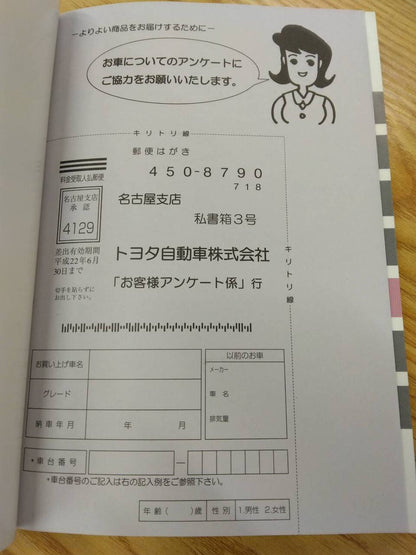 －よりよい商品をお届けするために－
お車についてのアンケートに
ご協力をお願いいたします。
キリトリ線
郵便はがき
450-8790
718
料金受取人払郵便
名古屋支店
承認
4129
差出有効期間
平成22年6月
30日まで
切手を貼らずに
お出し下さい。
名古屋支店
私書箱3号
トヨタ自動車株式会社
「お客様アンケート係」行
キリトリ線
お買い上げ車名
グレード
納車年月 年 月
以前のお車
メーカー
車名
排気量
*車台番号
*車台番号のご記入は右の記入例をご参照下さい。
年齢( )歳 性別 1.男性 2.女性